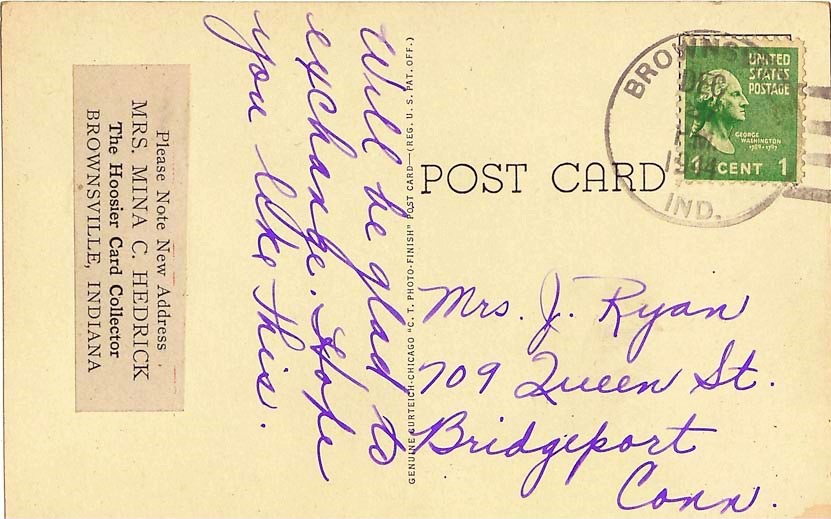 Please Note New Address
MRS. MINA C. HEDRICK
The Hoosier Card Collector
BROWNSVILLE, INDIANA
Will be glad to
exchange. Hope
you like this.
GENUINE CURTEICH-CHICAGO "C. T. PHOTO-FINISH" POST CARD—(REG. U. S. PAT. OFF.)
POST CARD
BROWNS
DEC
IND.
UNITED
STATES
POSTAGE
GEORGE
WASHINGTON
1789-1797
1 CENT 1
Mrs. J. Ryan
709 Queen St.
Bridgeport
Conn.